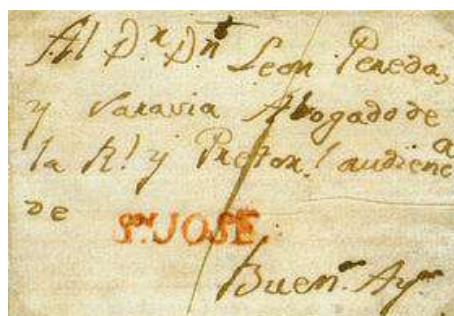 Al D.r D.n Leon Pereda,
y Saravia Abogado de
la R.l y Pretor.l audienc.a
de
S.n JOSE.
Buen.s Ay.s